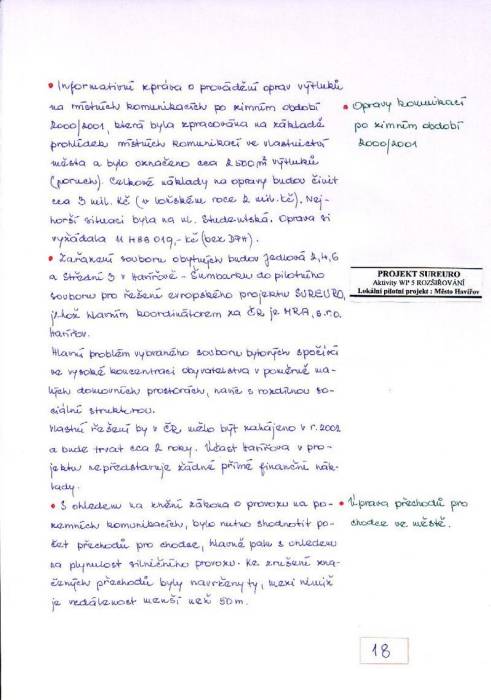 • Informativní zpráva o provádění oprav výtluků
na místních komunikacích po zimním období
2000/2001, která byla zpracována na základě
prohlídek místních komunikací ve vlastnictví
města a bylo označeno cca 2 500 m² výtluků
(poruch). Celkové náklady na opravy budou činit
cca 3 mil. Kč (v loňském roce 2 mil. Kč). Nej-
horší situací byla na ul. Studentská. Oprava si
vyžádala 11 488 019,- Kč (bez DPH).
• Opravy komunikací
po zimním období
2000/2001
• Zařazení souboru obytných budov Jedlová 2, 4, 6
a Střední 3 v Havířově - Šumbarku do pilotního
souboru pro řešení evropského projektu SUREURO,
jehož hlavním koordinátorem za ČR je MRA, s.r.o.
Havířov.
PROJEKT SUREURO
Aktivity WP 5 ROZŠIŘOVÁNÍ
Lokální pilotní projekt : Město Havířov
Hlavní problém vybraného souboru bytových spočívá
ve vysoké koncentraci obyvatelstva v poměrně ma-
lých domovních prostorách, navíc s rozdílnou so-
ciální strukturou.
Vlastní řešení by v ČR mělo být zahájeno v r. 2002
a bude trvat cca 2 roky. Účast Havířova v pro-
jektu nepředstavuje žádné přímé finanční nák-
lady.
• S ohledem na znění zákona o provozu na po-
zemních komunikacích, bylo nutno zhodnotit po-
čet přechodů pro chodce, hlavně pak s ohledem
na plynulost silničního provozu. Ke zrušení zna-
čených přechodů byly navrženy ty, mezi nimiž
je vzdálenost menší než 50 m.
• Úprava přechodů pro
chodce ve městě.
18